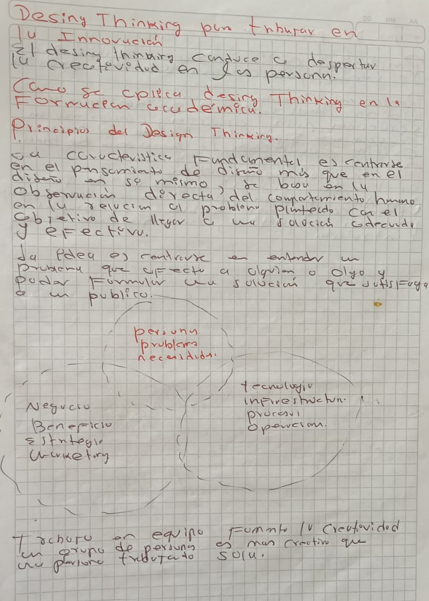 Desing Thinking para trabajar en
la Innovación
El desing thinking conduce a despertar
la creatividad en las persona.
Como se aplica desing Thinking en la
Formacion academica.
Principios del Design Thinking.
Su característica Fundamental es centrarse
en el pensamiento de diseño más que en el
diseño en si mismo, se basa en la
observación directa, del comportamiento humano
en la relación al problema planteado con el
objetivo de llegar a una solución adecuada
y efectiva.
La idea es centrarse en entender un
problema que afecta a alguien o algo y
poder Formular una solución que satisfaga
a un publico.
persona
problema
necesidad.
Negocio
Beneficio
Estrategia
Marketing
tecnologia
infraestructura.
procesos
operacion.
Trabajo en equipo Fomenta la creatividad
un grupo de personas es mas creativo que
una persona trabajando sola.